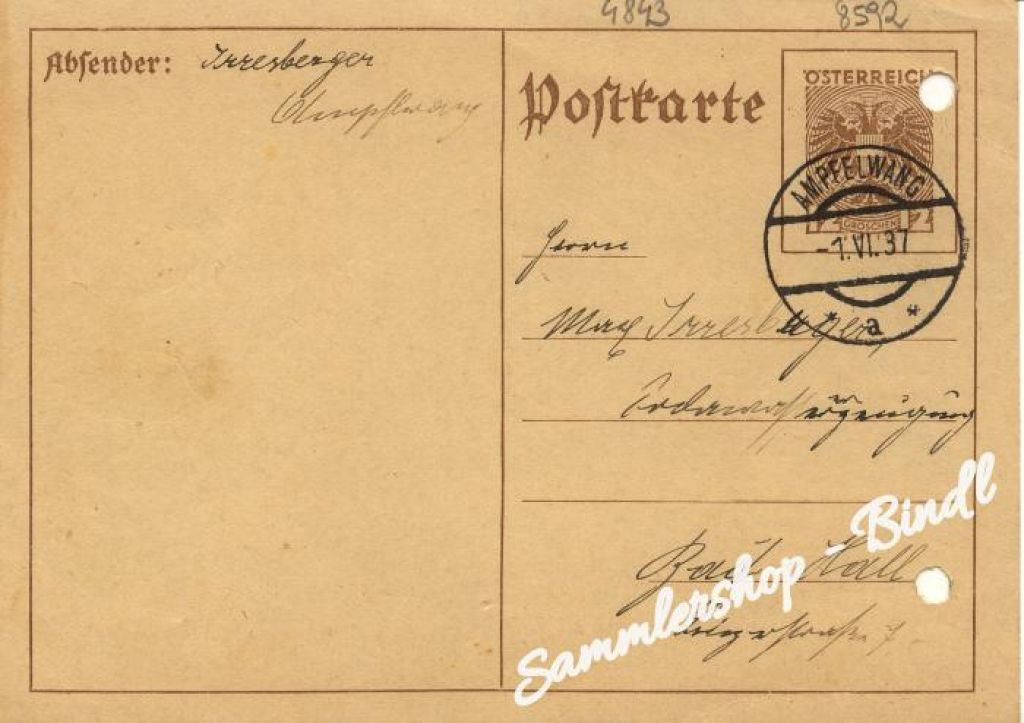 4843 8592
Absender: Irresberger
Ampflwang
Postkarte
ÖSTERREICH
GROSCHEN
AMPFELWANG
-1.VI.37
* a *
Herrn
Max Irresberger,
Sodawassererzeugung
Bad Hall
Sammlershop - Bindl